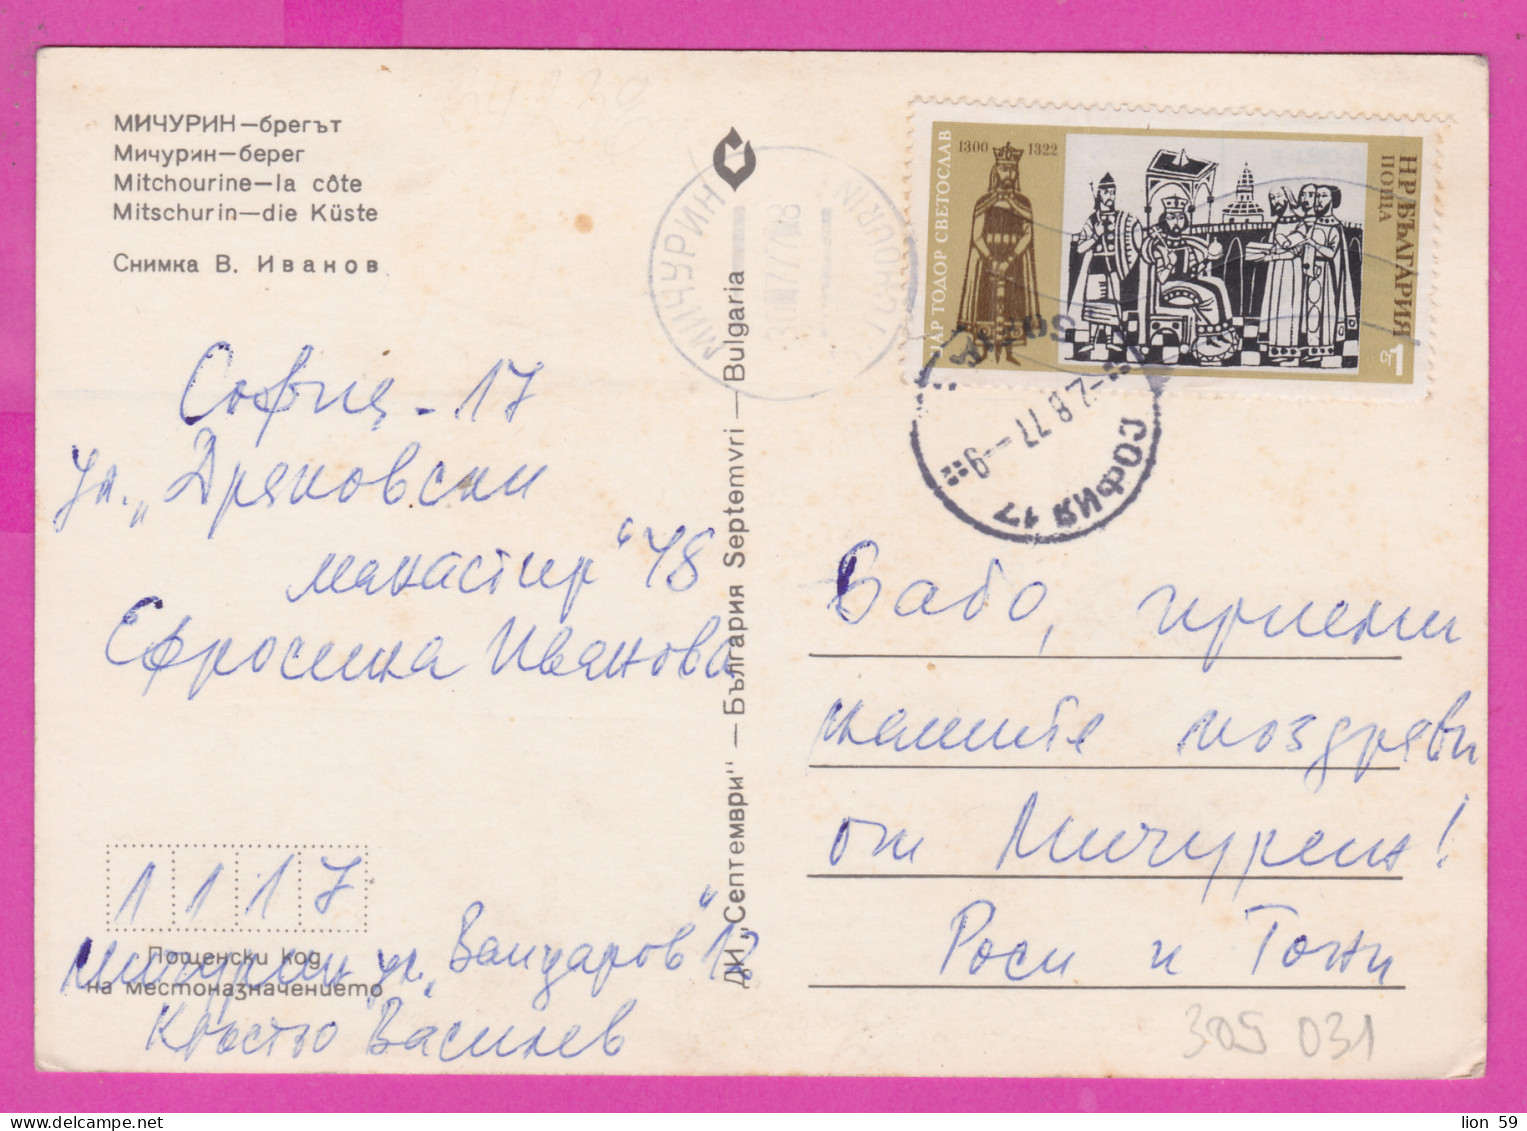 МИЧУРИН—брегът
Мичурин—берег
Mitchourine—la côte
Mitschurin—die Küste
Снимка В. Иванов
София - 17
ул. „Дряновски
манастир“ 48
Ефросина Иванова
1 1 1 7
Пощенски код
на местоназначението
Мичурин ул. „Вапцаров“ 12
Кръстьо Василев
ДИ „Септември“ — България Septemvri — Bulgaria
МИЧУРИН
ЦАР ТОДОР СВЕТОСЛАВ
1300 1322
НР БЪЛГАРИЯ
ПОЩА
1 ст
SOFIA
-2 8 77 — 9
СОФИЯ 17
Бабо, приеми
нашите поздрави
от Мичурин!
Роси и Тони
305 031
lion 59